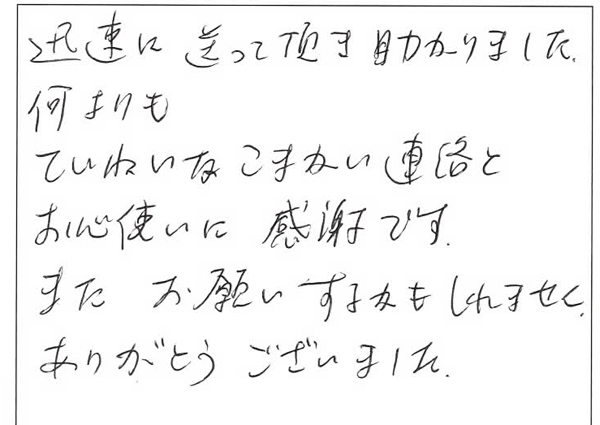 迅速に 送って頂き助かりました.
何よりも
ていねいな こまかい 連絡と
お心使いに 感謝です.
また お願いするかもしれません.
ありがとう ございました.